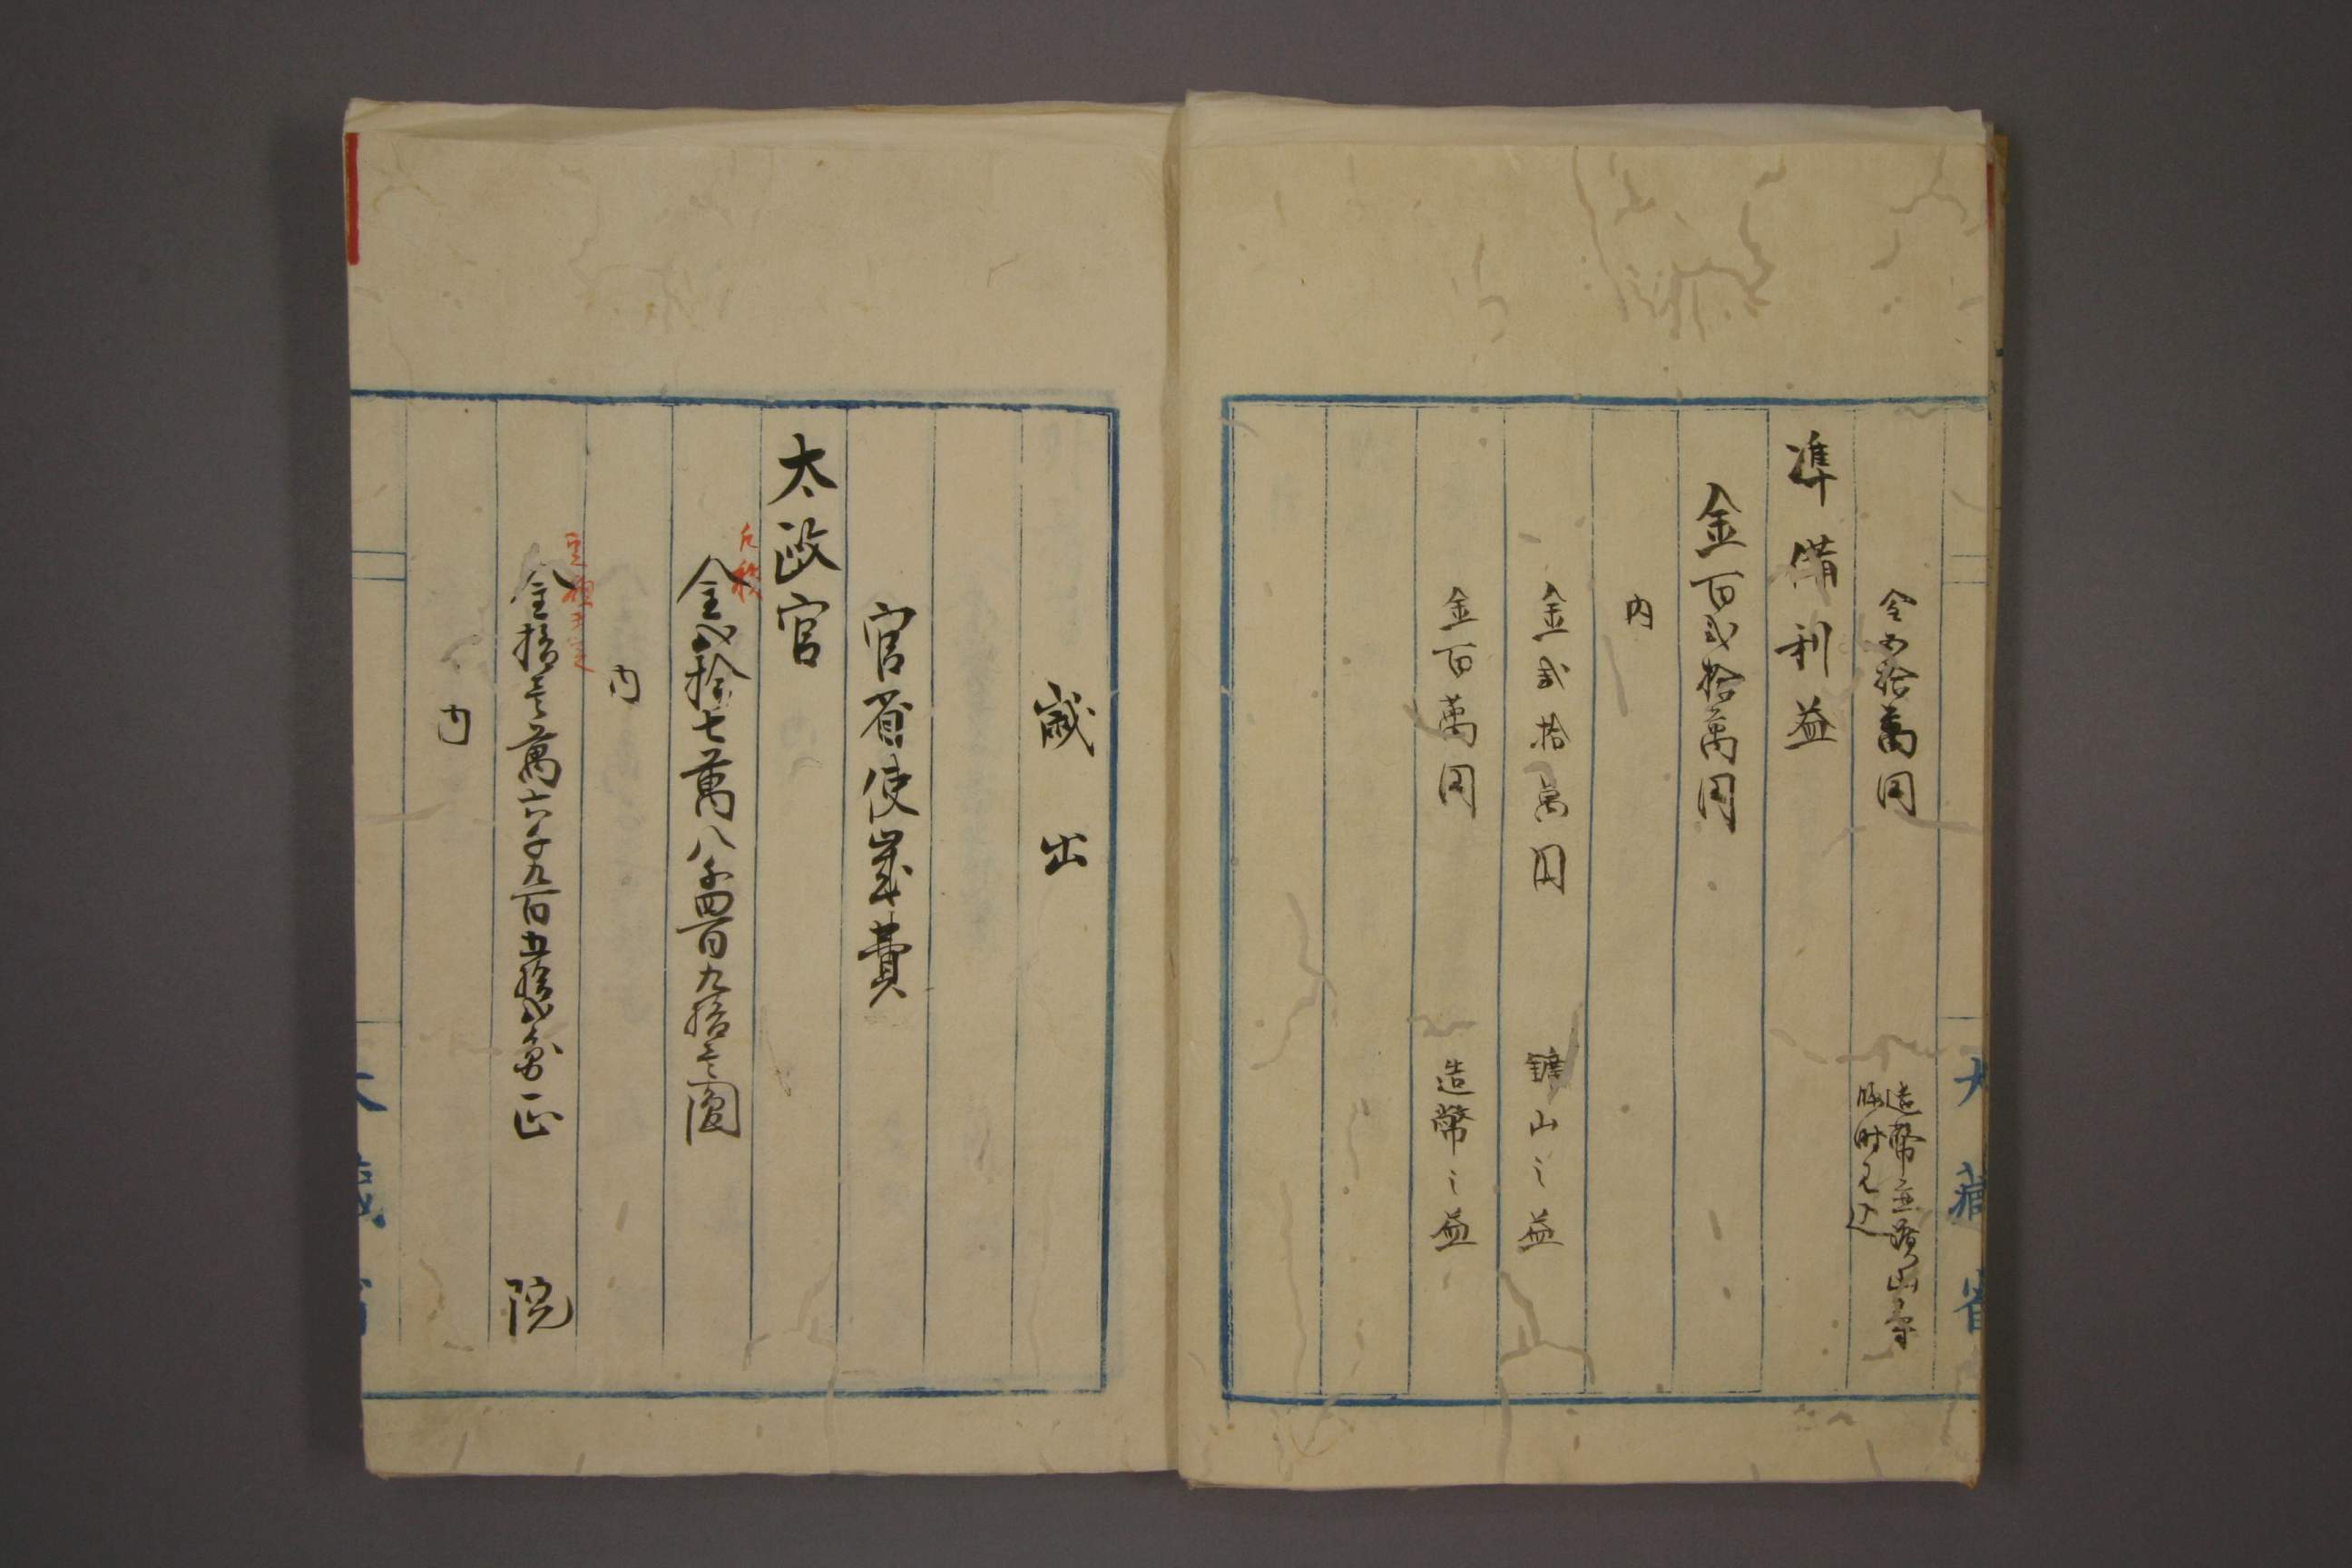 大藏省
金五拾萬円
造幣並鑛山等
臨時見込
準備利益
金百弐拾萬円
内
金弐拾萬円 鑛山之益
金百萬円 造幣之益
歳出
官省使歳費
太政官
金八拾七萬八千四百九拾壱圓
内
金拾壱萬六千九百五拾八圓 正院
内
大藏省